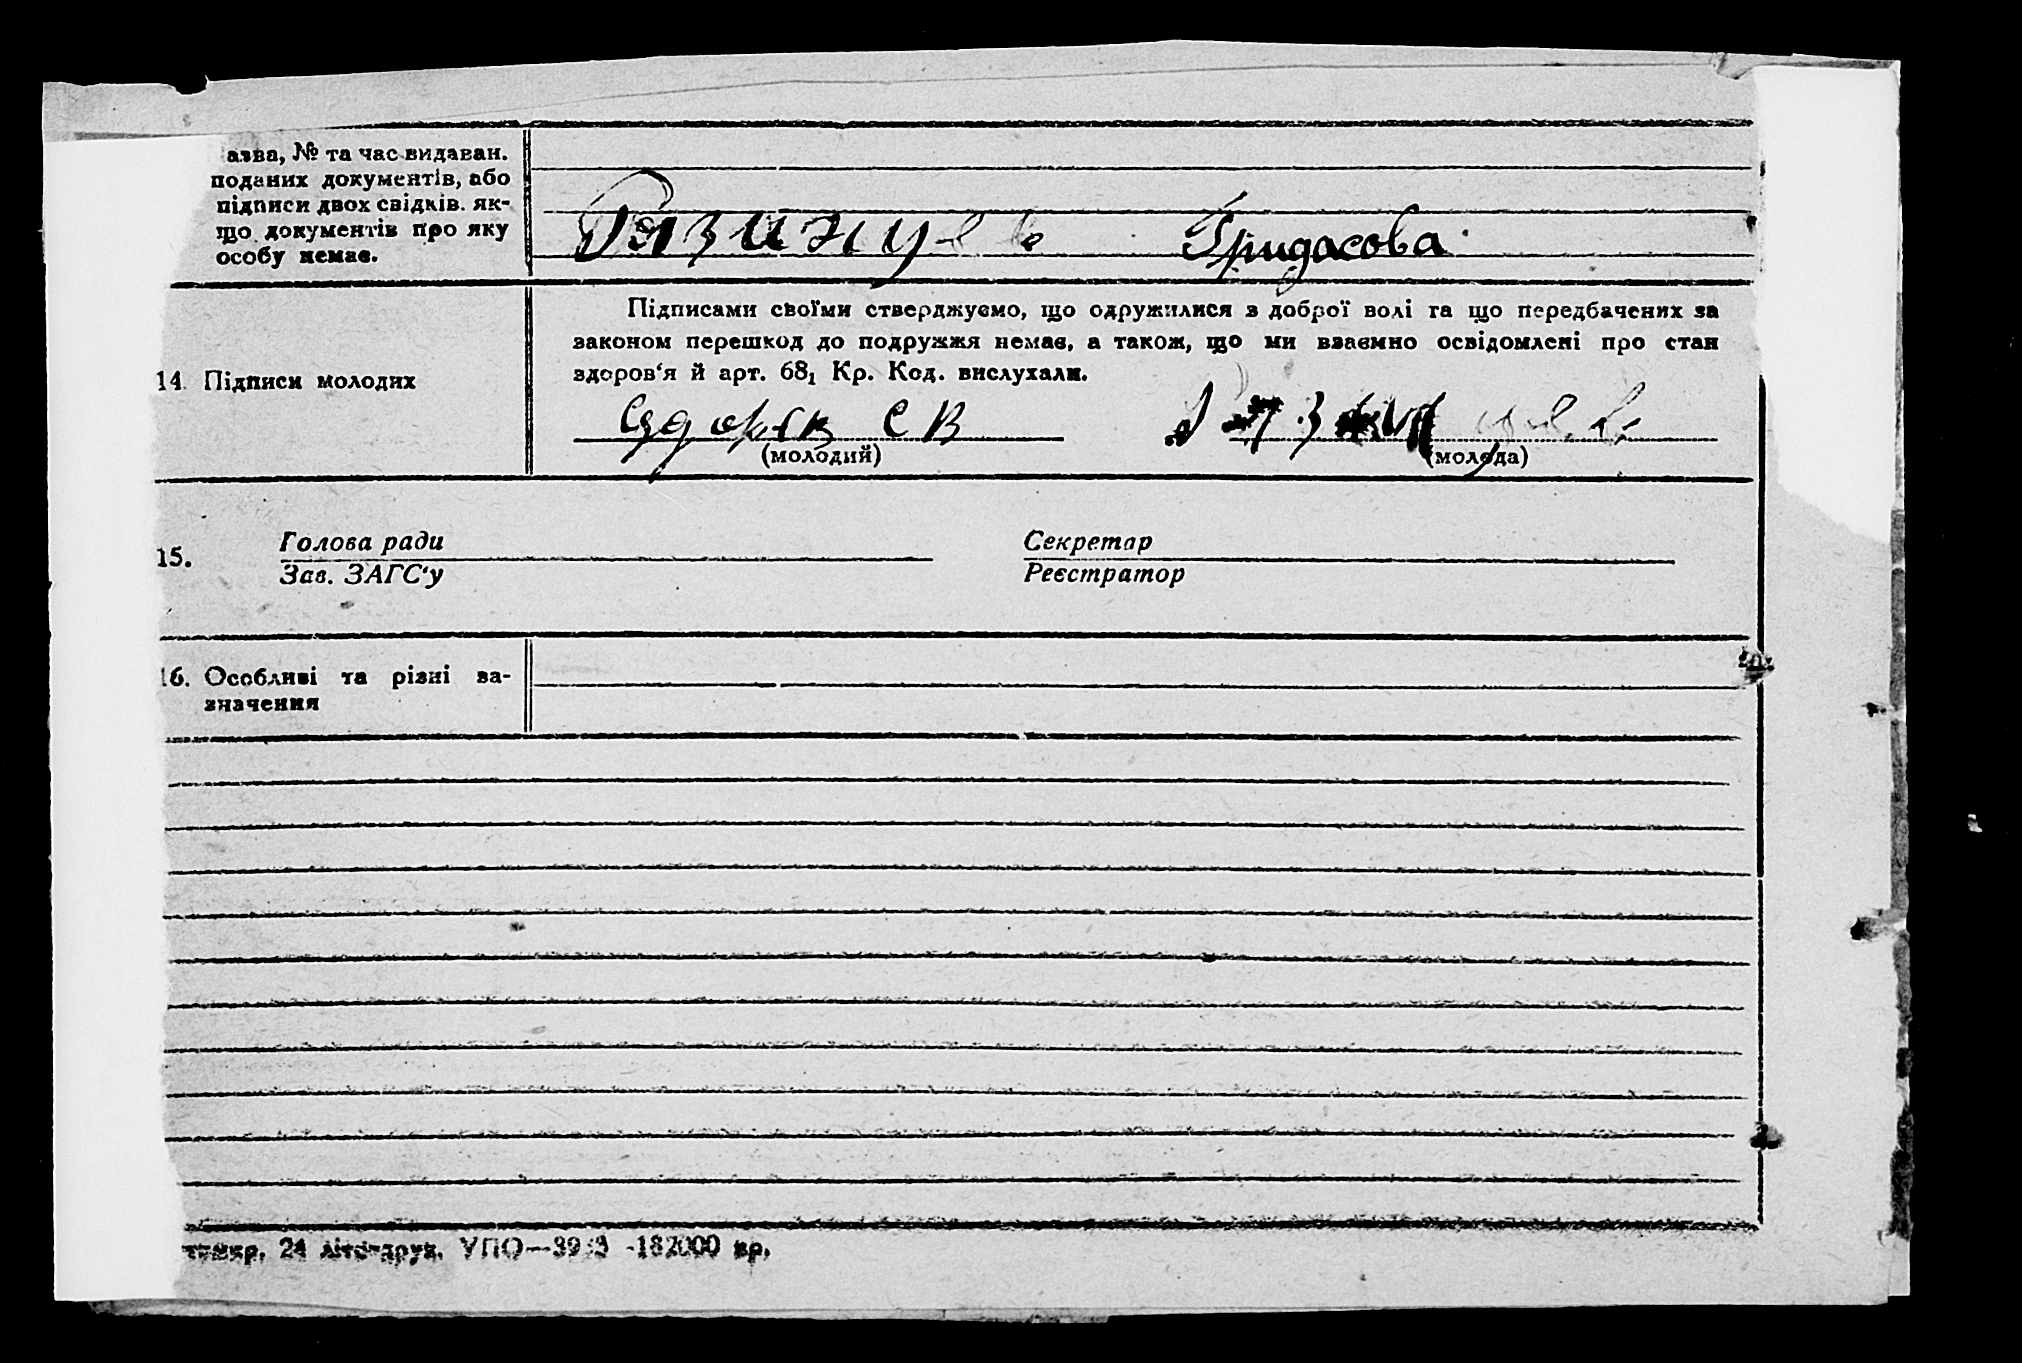 азва, № та час видаван.
поданих документів, або
підписи двох свідків. як-
що документів про яку
особу немає.
Гридасова
Підписами своїми стверджуємо, що одружилися з доброї волі та що передбачених за
законом перешкод до подружжя немає, а також, що ми взаємно освідомлені про стан
здоров'я й арт. 68₁ Кр. Код. вислухали.
14. Підписи молодих
С В
(молодий) (молода)
15. Голова ради Секретар
Зав. ЗАГС'у Реєстратор
16. Особливі та різні за-
значення
24 літодрук. УПО— -182000 пр.